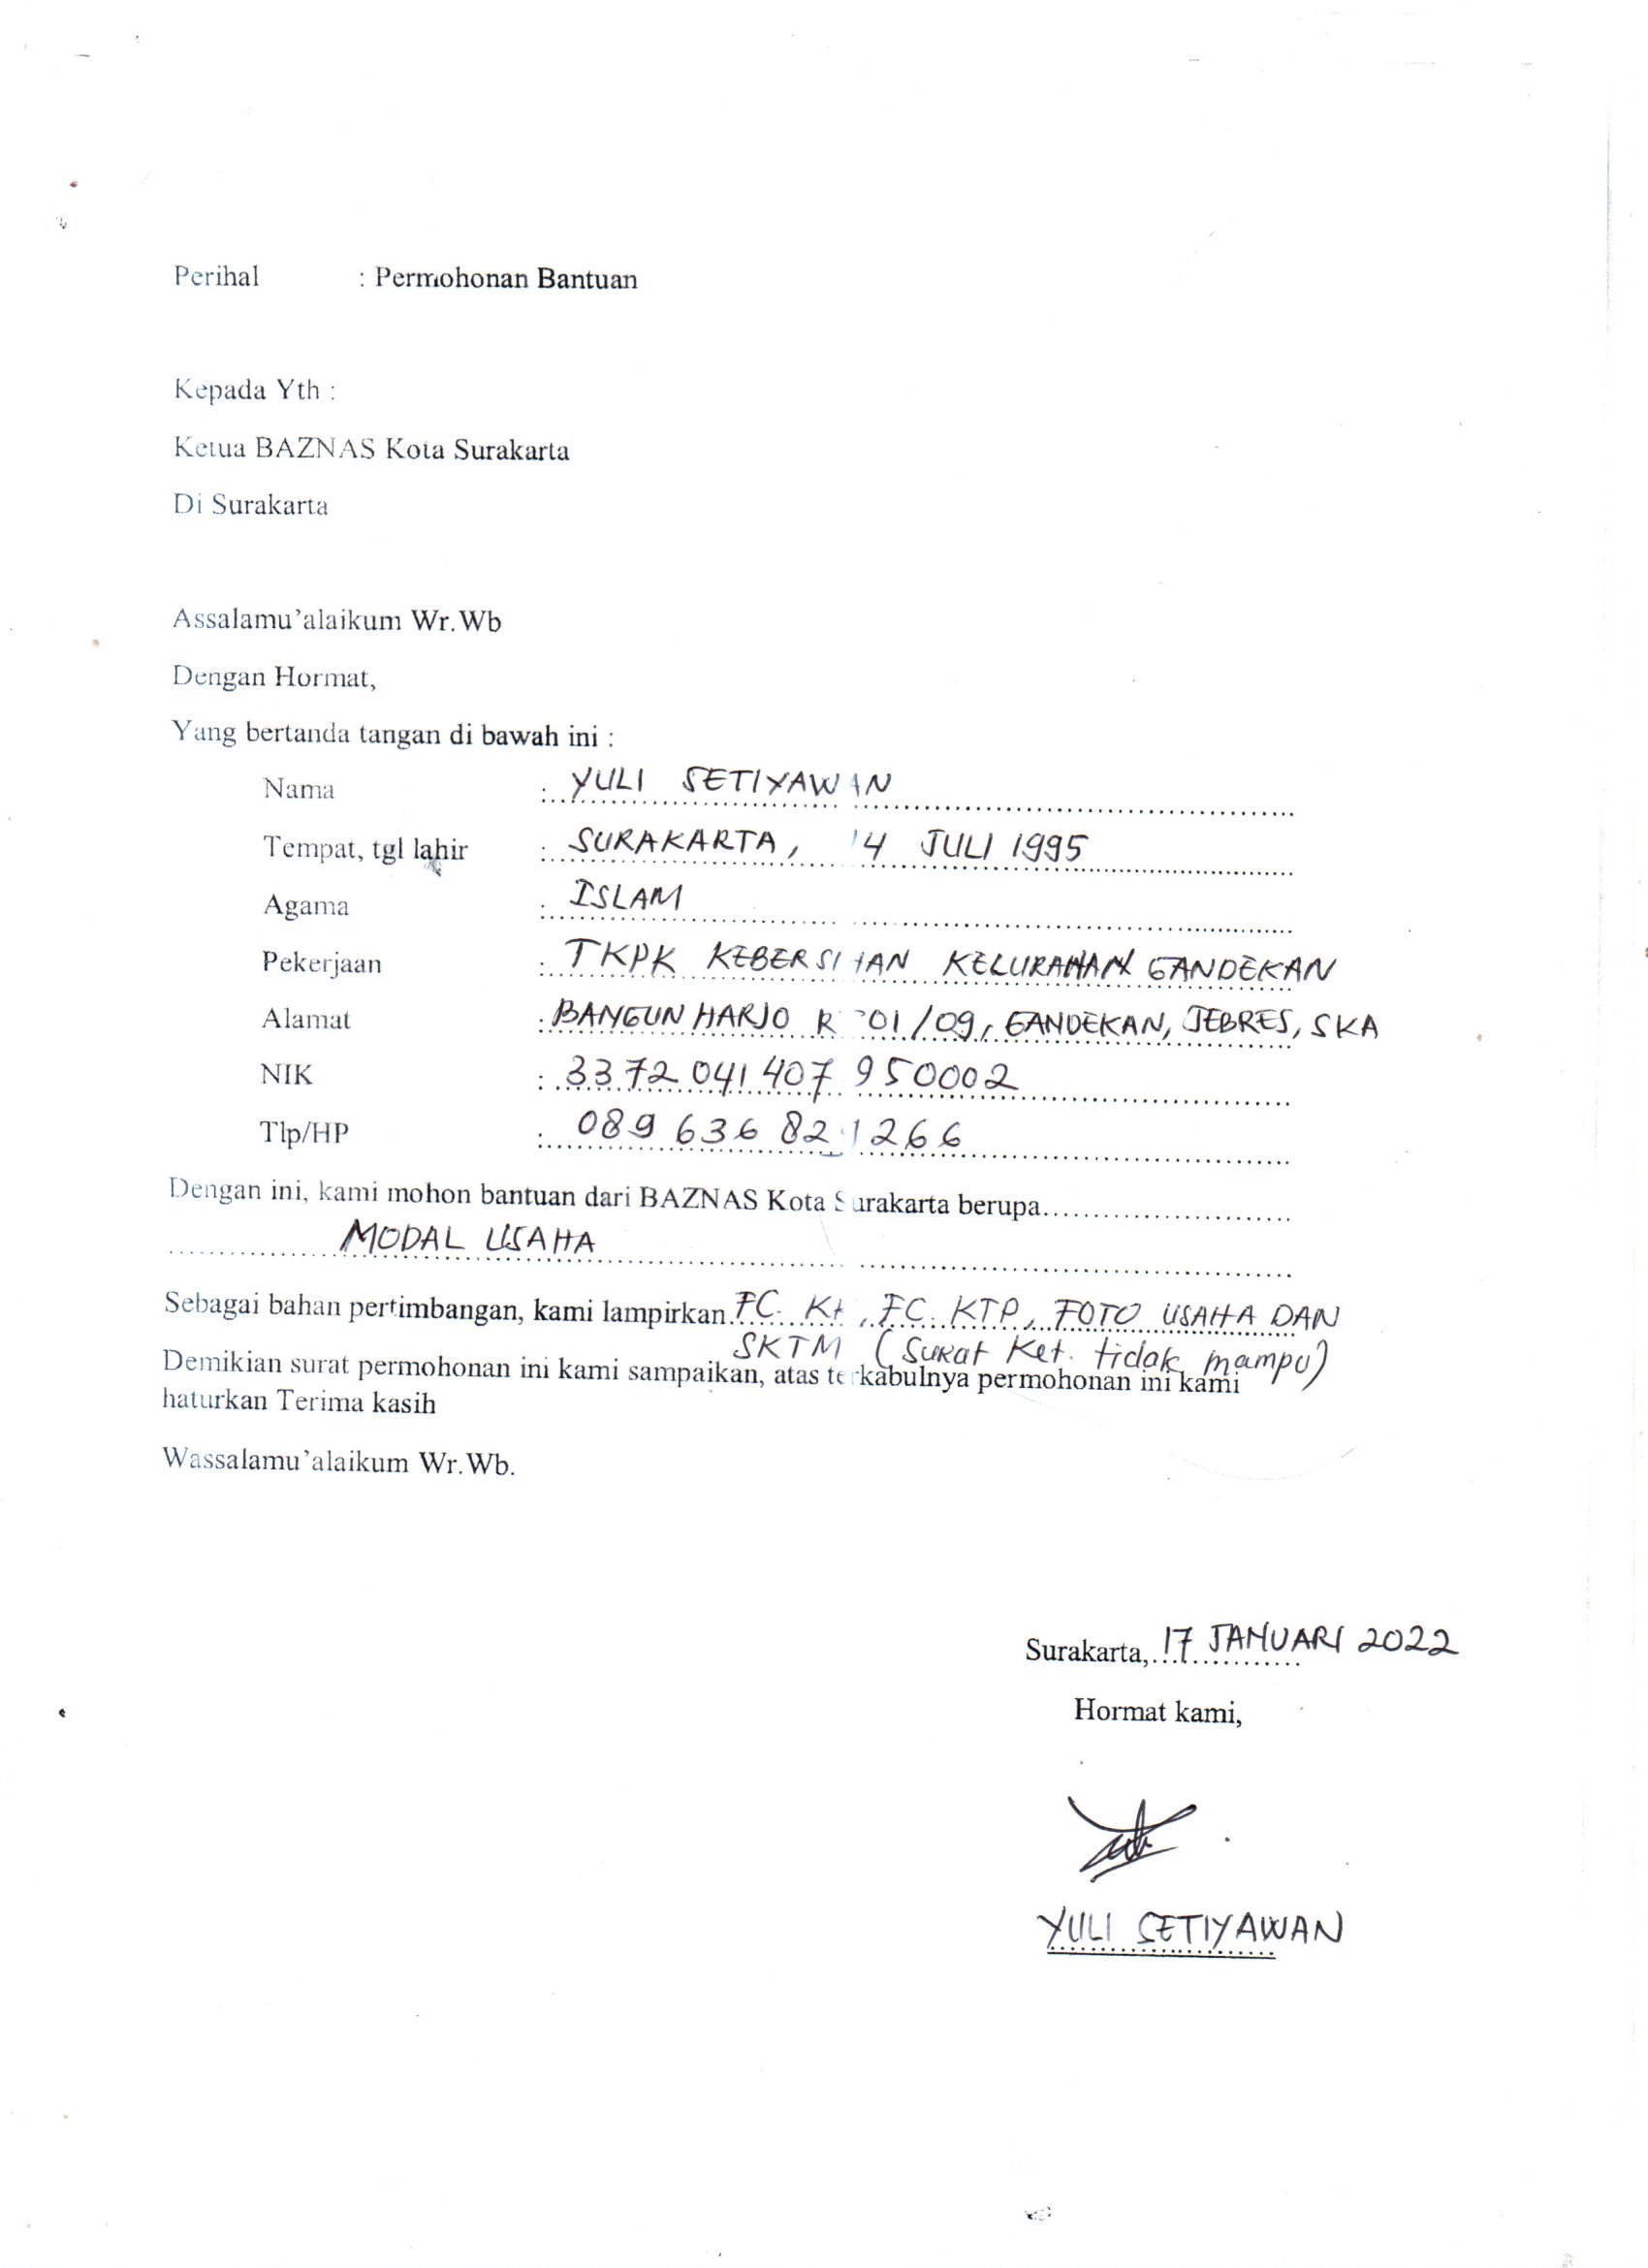 Perihal : Permohonan Bantuan
Kepada Yth :
Ketua BAZNAS Kota Surakarta
Di Surakarta
Assalamu'alaikum Wr.Wb
Dengan Hormat,
Yang bertanda tangan di bawah ini :
Nama : YULI SETIYAWAN
Tempat, tgl lahir : SURAKARTA, 14 JULI 1995
Agama : ISLAM
Pekerjaan : TKPK KEBERSIHAN KELURAHAN GANDEKAN
Alamat : BANGUNHARJO 01/09, GANDEKAN, JEBRES, SKA
NIK : 3372041407950002
Tlp/HP : 089 636 821 266
Dengan ini, kami mohon bantuan dari BAZNAS Kota Surakarta berupa........................
MODAL USAHA
Sebagai bahan pertimbangan, kami lampirkan FC. KK, FC. KTP, FOTO USAHA DAN
SKTM (Surat Ket. tidak mampu)
Demikian surat permohonan ini kami sampaikan, atas terkabulnya permohonan ini kami
haturkan Terima kasih
Wassalamu'alaikum Wr.Wb.
Surakarta, 17 JANUARI 2022
Hormat kami,
YULI SETIYAWAN